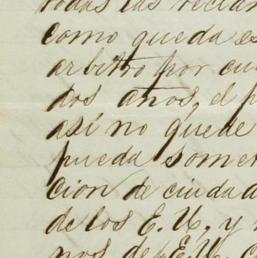 todas las recla
como queda es
arbitro por cu
dos años, el p
así no quede
pueda somet
cion de ciudad
de los E. U, y
nos de E. U.